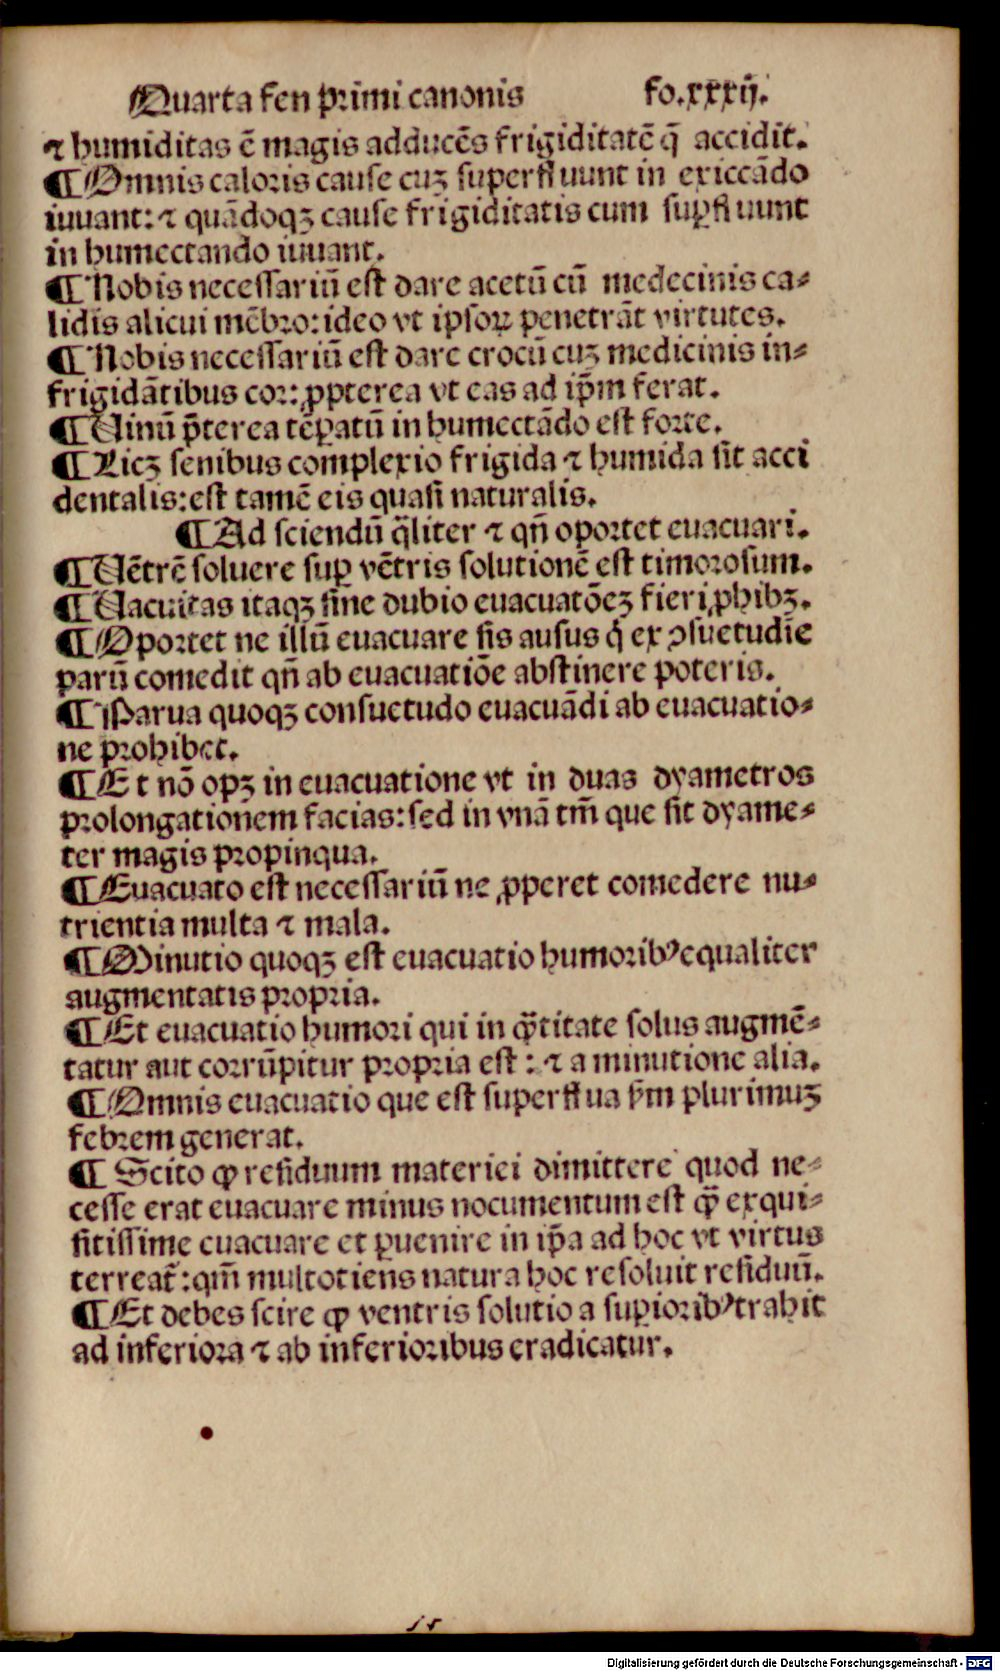 Quarta fen primi canonis fo.xxxij.
⁊ humiditas ē magis adducēs frigiditatē q̄ accidit.
¶Omnis caloris cause cuꝫ superfluunt in exiccādo
iuuant: ⁊ quādoqꝫ cause frigiditatis cum suꝑfluunt
in humectando iuuant.
¶Nobis necessariū est dare acetū cū medecinis ca⸗
lidis alicui mēbro: ideo vt ipsoꝝ penetrāt virtutes.
¶Nobis necessariū est dare crocū cuꝫ medicinis in⸗
frigidātibus cor: ꝓpterea vt eas ad ip̄m ferat.
¶Uinū p̄terea tēꝑatū in humectādo est forte.
¶Licꝫ senibus complexio frigida ⁊ humida sit acci
dentalis: est tamē eis quasi naturalis.
¶Ad sciendū q̄liter ⁊ qn̄ oportet euacuari.
¶Uētrē soluere suꝑ vētris solutionē est timorosum.
¶Uacuitas itaqꝫ sine dubio euacuatōeꝫ fieri ꝓhibꝫ.
¶Oportet ne illū euacuare sis ausus q̇ ex ꝯsuetudīe
parū comedit qn̄ ab euacuatiōe abstinere poteris.
¶Parua quoqꝫ consuetudo euacuādi ab euacuatio⸗
ne prohibet.
¶Et nō opꝫ in euacuatione vt in duas dyametros
prolongationem facias: sed in vnā tm̄ que sit dyame⸗
ter magis propinqua.
¶Euacuato est necessariū ne ꝓperet comedere nu⸗
trientia multa ⁊ mala.
¶Minutio quoqꝫ est euacuatio humoribꝰ equaliter
augmentatis propria.
¶Et euacuatio humori qui in q̄titate solus augmē⸗
tatur aut corrūpitur propria est: ⁊ a minutione alia.
¶Omnis euacuatio que est superflua ẜm plurimuꝫ
febrem generat.
¶Scito ꝙ residuum materiei dimittere quod ne⸗
cesse erat euacuare minus nocumentum est ꝙ̄ exqui⸗
sitissime euacuare et ꝑuenire in ip̄a ad hoc vt virtus
terreat᷑: qm̄ multotiens natura hoc resoluit residuū.
¶Et debes scire ꝙ ventris solutio a suꝑioribꝰ trahit
ad inferiora ⁊ ab inferioribus eradicatur.
15
Digitalisierung gefördert durch die Deutsche Forschungsgemeinschaft - DFG